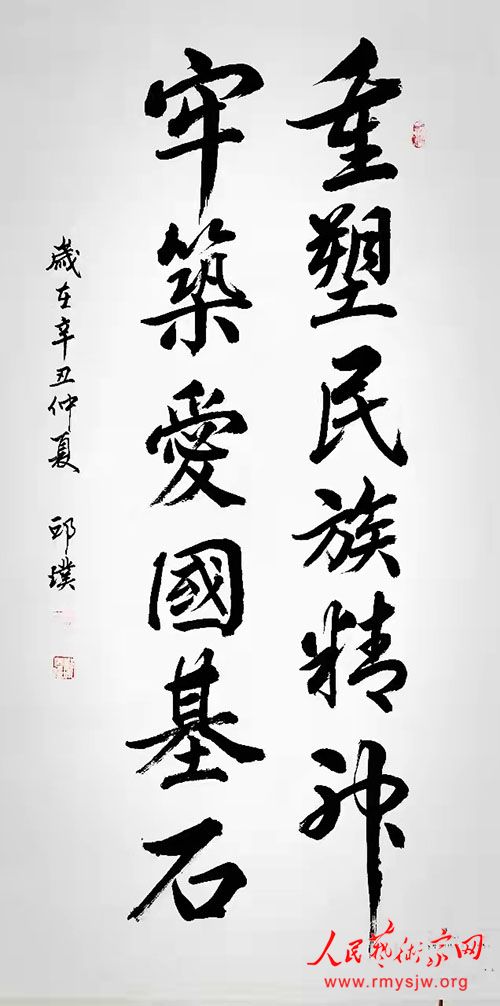 重塑民族精神
牢築愛國基石
歲在辛丑仲夏 邱璞
人民藝術家网
www.rmysjw.org